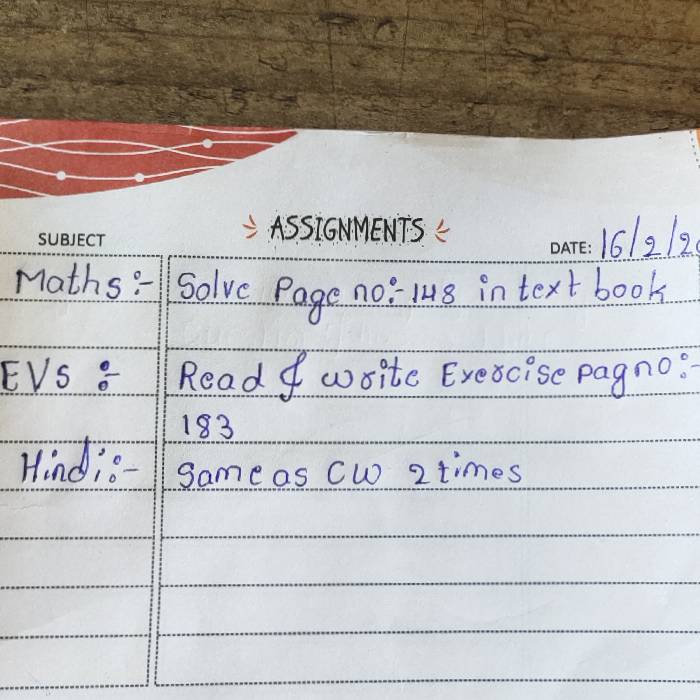 ASSIGNMENTS
SUBJECT DATE: 16/2/20
Maths :- Solve Page no:- 148 in text book
EVS :- Read & write Exercise pag no:-
183
Hindi:- Same as CW 2 times